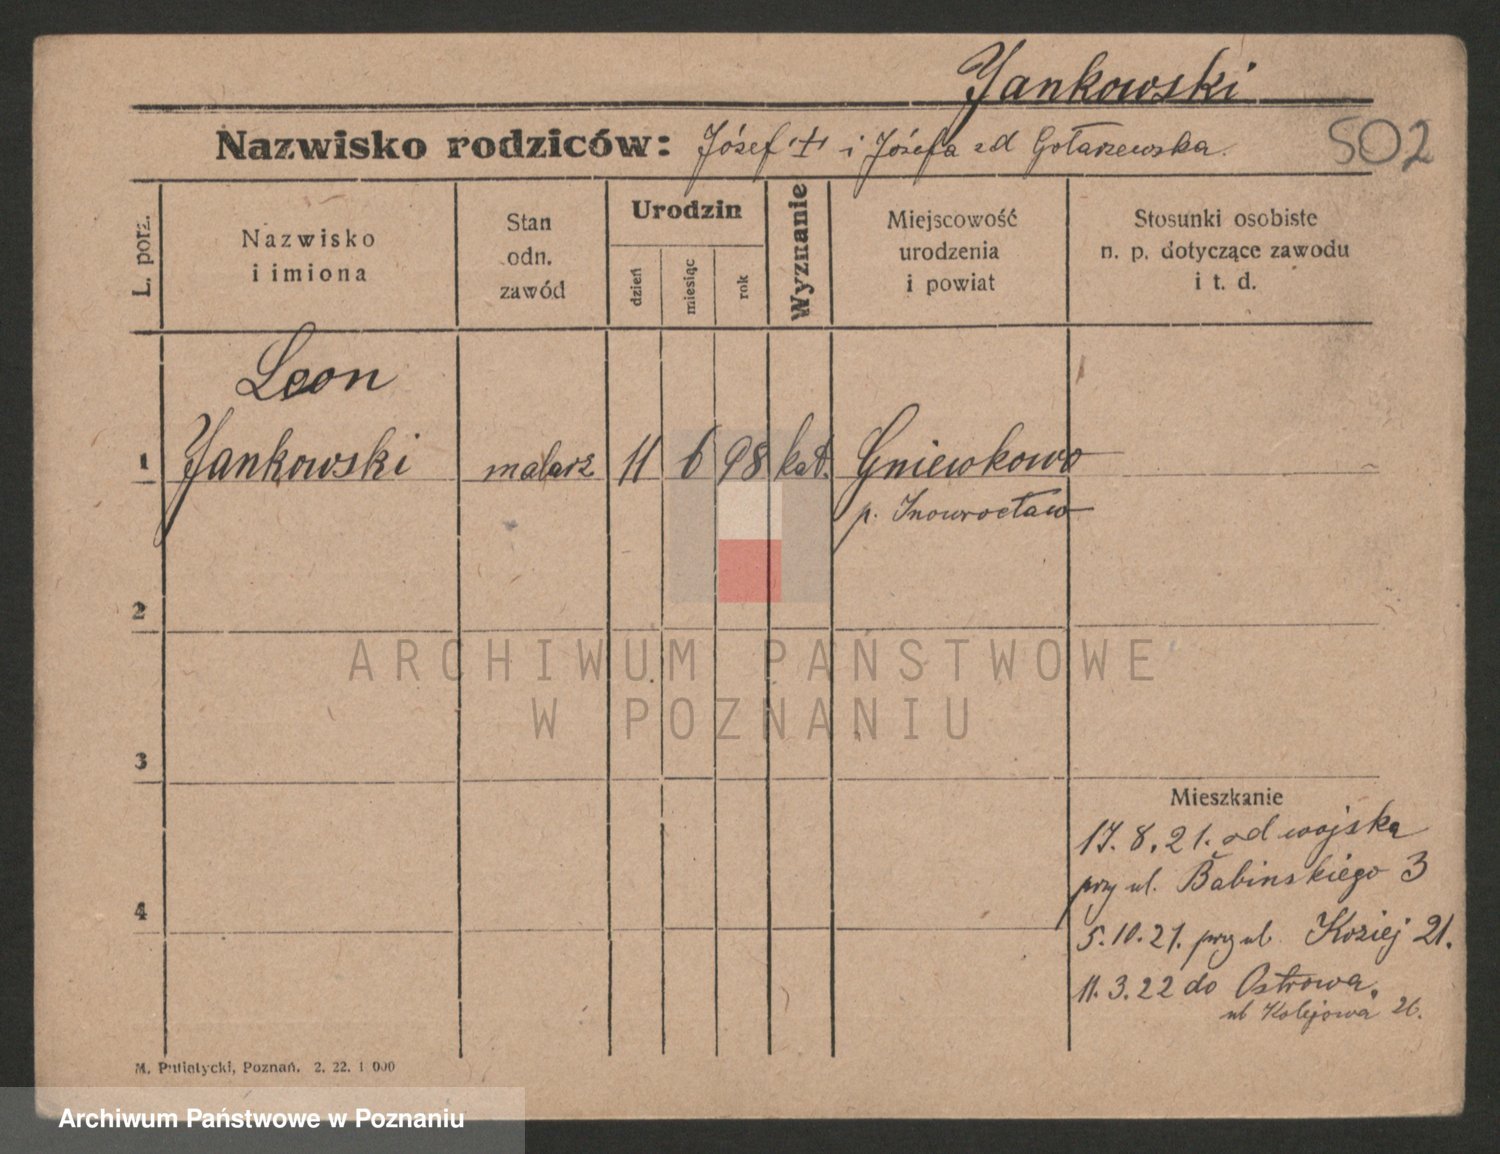 Jankowski
Nazwisko rodziców: Józef + i Józefa zd Gołaszewska.
502
L. porz.
Nazwisko
i imiona
Stan
odn.
zawód
Urodzin
dzień
miesiąc
rok
Wyznanie
Miejscowość
urodzenia
i powiat
Stosunki osobiste
n. p. dotyczące zawodu
i t. d.
Leon
1 Jankowski malarz 11 6 98 kat. Gniewkowo
p. Inowrocław
2
ARCHIWUM PAŃSTWOWE
W POZNANIU
3
Mieszkanie
17.8.21. od wojska
przy ul. Babinskiego 3
4
5.10.21. przy ul. Koziej 21.
11.3.22 do Ostrowa.
ul Kolejowa 26.
M. Putiatycki, Poznań. 2. 22. 1 000
Archiwum Państwowe w Poznaniu